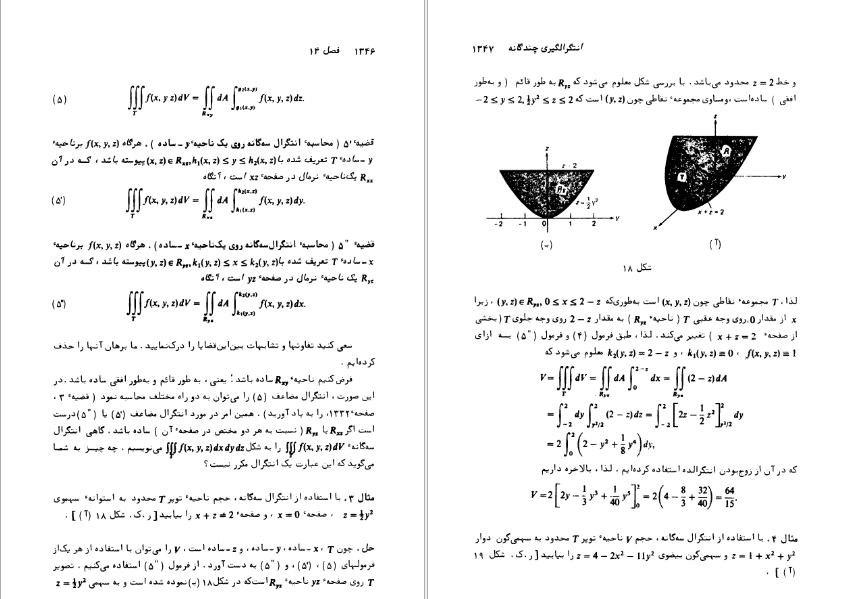 ۱۳۴۶ فصل ۱۴
(۵) ∭_T f(x, y z) dV = ∬_{R_xy} dA ∫_{g₁(x,y)}^{g₂(x,y)} f(x, y, z) dz.
قضیهٔ ′۵ ( محاسبهٔ انتگرال سه‌گانه روی یک ناحیهٔ y – ساده ) . هرگاه f(x, y, z) بر ناحیهٔ
y – سادهٔ T تعریف شده با (x, z) ∈ R_xz, h₁(x, z) ≤ y ≤ h₂(x, z) پیوسته باشد ، که در آن
R_xz یک ناحیهٔ نرمال در صفحهٔ xz است ، آنگاه
(۵′) ∭_T f(x, y, z) dV = ∬_{R_xz} dA ∫_{h₁(x,z)}^{h₂(x,z)} f(x, y, z) dy.
قضیهٔ ″۵ ( محاسبهٔ انتگرال سه‌گانه روی یک ناحیهٔ x – ساده ) . هرگاه f(x, y, z) بر ناحیهٔ
x – سادهٔ T تعریف شده با (y, z) ∈ R_yz, k₁(y, z) ≤ x ≤ k₂(y, z) پیوسته باشد ، که در آن
R_yz یک ناحیهٔ نرمال در صفحهٔ yz است ، آنگاه
(۵″) ∭_T f(x, y, z) dV = ∬_{R_yz} dA ∫_{k₁(y,z)}^{k₂(y,z)} f(x, y, z) dx.
سعی کنید تفاوتها و تشابهات بین این قضایا را درک نمایید . ما برهان آنها را حذف
کرده‌ایم .
فرض کنیم ناحیهٔ R_xy ساده باشد ؛ یعنی ، به طور قائم و به‌طور افقی ساده باشد . در
این صورت ، انتگرال مضاعف (۵) را می‌توان به دو راه مختلف محاسبه نمود ( قضیهٔ ۳ ،
صفحهٔ ۱۳۳۲ ، را به یاد آورید ) . همین امر در مورد انتگرال مضاعف (۵′) یا (۵″) درست
است اگر R_xz یا R_yz ( نسبت به هر دو مختص در صفحهٔ آن ) ساده باشد . گاهی انتگرال
سه‌گانهٔ ∭_T f(x, y, z) dV را به شکل ∭_T f(x, y, z) dx dy dz می‌نویسیم . چه چیز به شما
می‌گوید که این عبارت یک انتگرال مکرر نیست ؟
مثال ۳ . با استفاده از انتگرال سه‌گانه ، حجم ناحیهٔ توپر T محدود به استوانهٔ سهموی
z = ½y² ، صفحهٔ x = 0 ، و صفحهٔ x + z = 2 را بیابید [ ر.ک. شکل ۱۸ (آ) ] .
حل . چون T ، x – ساده ، y – ساده ، و z – ساده است ، V را می‌توان با استفاده از هر یک از
فرمولهای (۵) ، (۵′) ، و (۵″) به دست آورد . از فرمول (۵″) استفاده می‌کنیم . تصویر
T روی صفحهٔ yz ناحیهٔ R_yz است که در شکل ۱۸ (ب) نموده شده است و به سهمی z = ½y²
انتگرالگیری چندگانه ۱۳۴۷
و خط z = 2 محدود می‌باشد . با بررسی شکل معلوم می‌شود که R_yz به طور قائم ( و به‌طور
افقی ) ساده است ، و مساوی مجموعهٔ نقاطی چون (y, z) است که −2 ≤ y ≤ 2, ½y² ≤ z ≤ 2
z
z = 2
R_yz
z = ½y²
−2 −1 0 1 2 y
(ب)
z
R
T
y
x + z = 2
x
(آ)
شکل ۱۸
لذا ، T مجموعهٔ نقاطی چون (x, y, z) است به طوری‌که (y, z) ∈ R_yz, 0 ≤ x ≤ 2 − z ، زیرا
x از مقدار 0 ، روی وجه عقبی T ( ناحیهٔ R_yz ) به مقدار 2 − z روی وجه جلوی T ( بخشی
از صفحهٔ x + z = 2 ) تغییر می‌کند . لذا ، طبق فرمول (۴) و فرمول (۵″) به ازای
f(x, y, z) ≡ 1 ، k₁(y, z) ≡ 0 ، و k₂(y, z) = 2 − z معلوم می‌شود که
V = ∭_T dV = ∬_{R_yz} dA ∫_0^{2−z} dx = ∬_{R_yz} (2 − z) dA
= ∫_{−2}^{2} dy ∫_{y²/2}^{2} (2 − z) dz = ∫_{−2}^{2} [2z − ½ z²]_{y²/2}^{2} dy
= 2 ∫_0^2 (2 − y² + ⅛ y⁴) dy,
که در آن از زوج بودن انتگرالده استفاده کرده‌ایم . لذا ، بالاخره داریم
V = 2 [2y − ⅓ y³ + 1/40 y⁵]_0^2 = 2 (4 − 8/3 + 32/40) = 64/15.
مثال ۴ . با استفاده از انتگرال سه‌گانه ، حجم V ناحیهٔ توپر T محدود به سهمی‌گون دوار
z = 1 + x² + y² و سهمی‌گون بیضوی z = 4 − 2x² − 11y² را بیابید [ ر.ک. شکل ۱۹
(آ) ] .